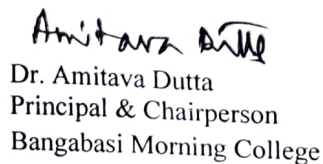 Amitava Dutta
Dr. Amitava Dutta
Principal & Chairperson
Bangabasi Morning College